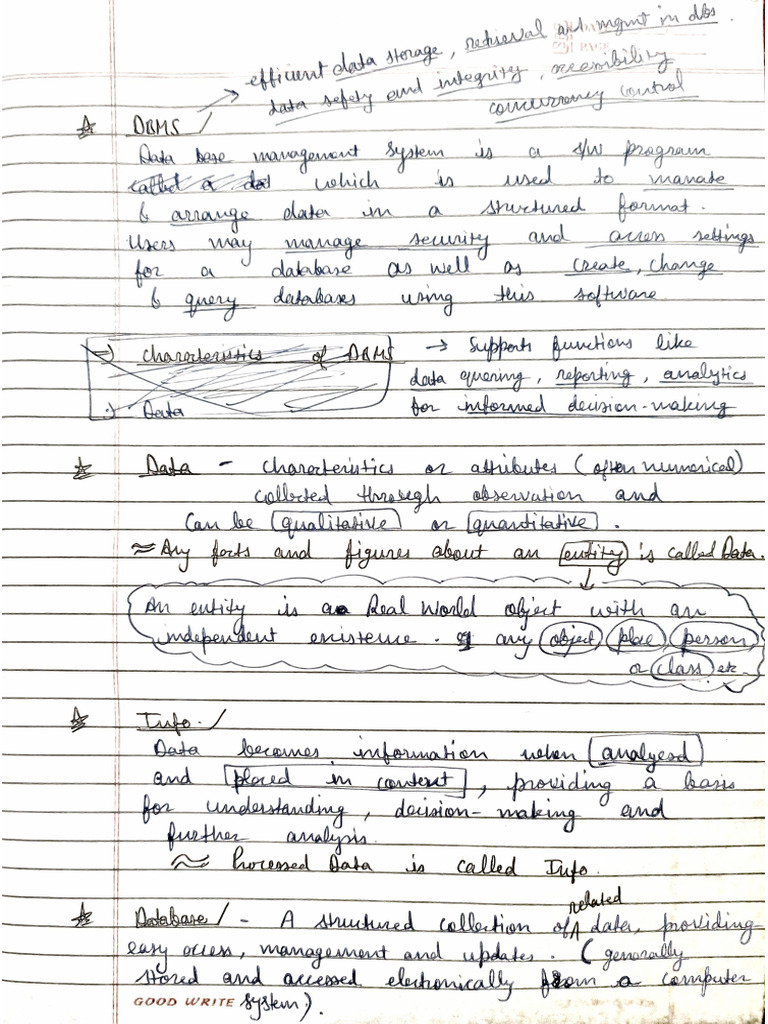 efficient data storage, retrieval and mgmt in dbs.
data safety and integrity,
concurrency control
DBMS
Data base management system is a s/w program
called a dat which is used to manate
& arrange data in a structured format.
Users may manage security and access settings
for a database as well as create, change
& query databases using this software
=) Characteristics of DBMS → Supports functions like
data quering, reporting, analytics
·) Data for informed decision-making
Data - Characteristics or attributes (often numerical)
collected through observation and
Can be qualitative or quantitative.
≈ Any facts and figures about an entity is called Data.
An entity is a Real World object with an
independent existence. any object place person
or class etc
Info.
Data becomes information when analyesd
and placed in context, providing a basis
for understanding, decision-making and
further analysis.
≈ Processed Data is called Info.
related
Database - A structured collection of data, providing
easy access, management and updates. (generally
stored and accessed electronically from a computer
GOOD WRITE system).